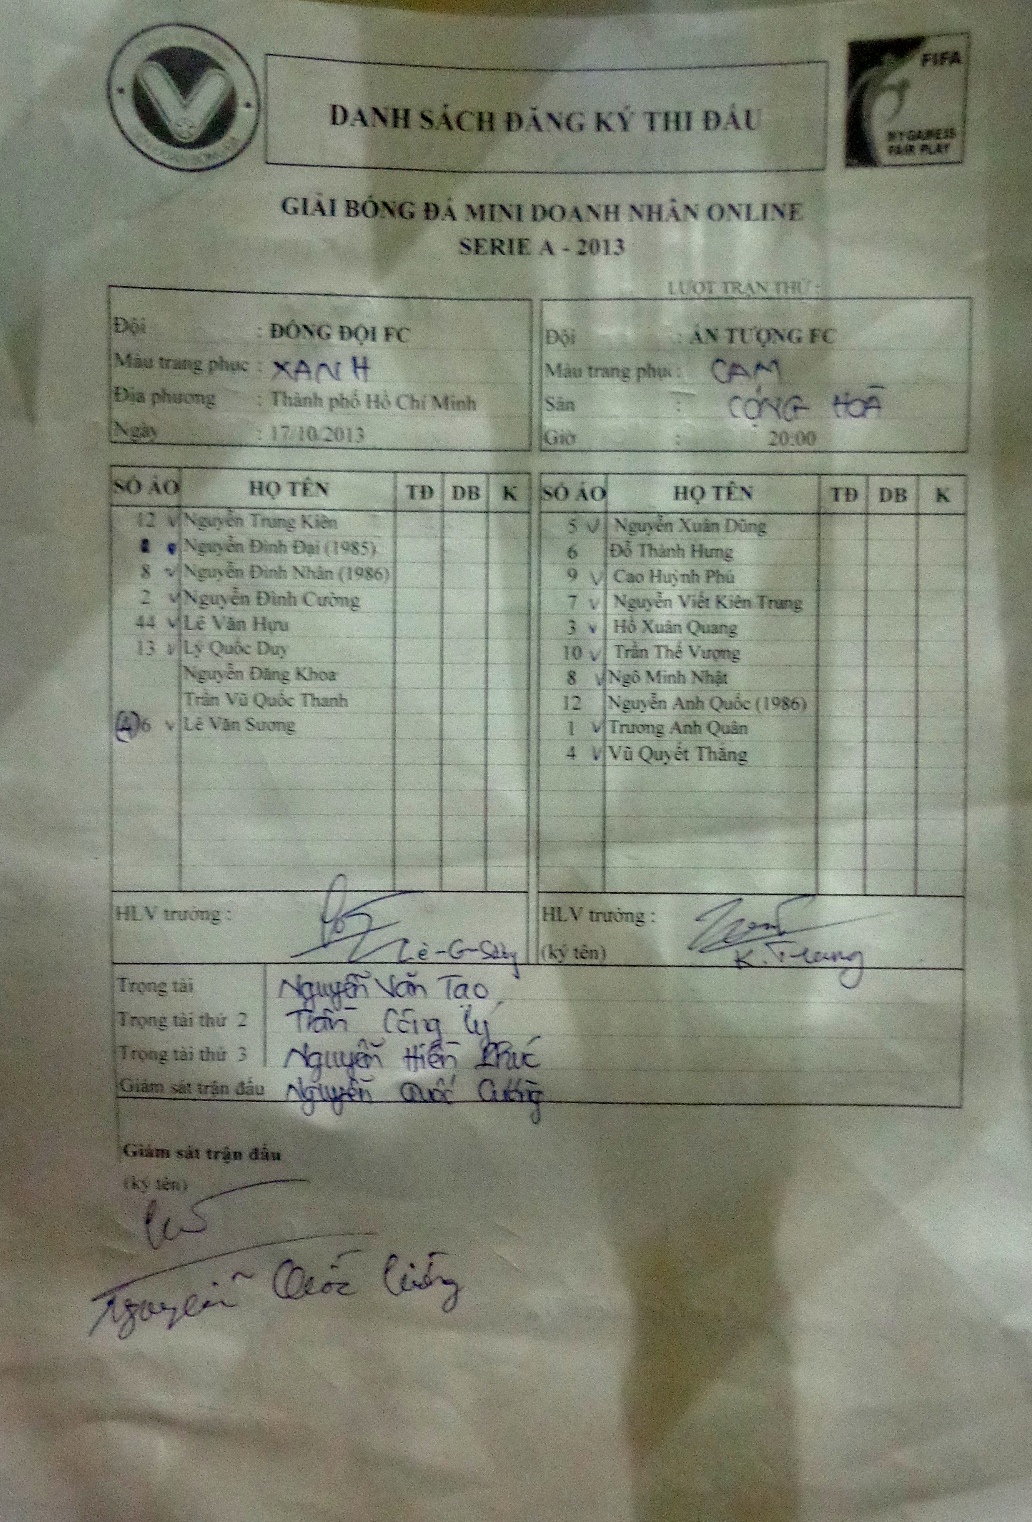 DANH SÁCH ĐĂNG KÝ THI ĐẤU
FIFA
MY GAME IS
FAIR PLAY
GIẢI BÓNG ĐÁ MINI DOANH NHÂN ONLINE
SERIE A - 2013
LƯỢT TRẬN THỨ :
Đội : ĐỒNG ĐỘI FC
Màu trang phục : XANH
Địa phương : Thành phố Hồ Chí Minh
Ngày : 17/10/2013
Đội : ẤN TƯỢNG FC
Màu trang phục : CAM
Sân : CỘNG HOÀ
Giờ : 20:00
SỐ ÁO HỌ TÊN TĐ DB K
12 v Nguyễn Trung Kiên
Nguyễn Đình Đại (1985)
8 v Nguyễn Đình Nhân (1986)
2 v Nguyễn Đình Cường
44 v Lê Văn Hựu
13 v Lý Quốc Duy
Nguyễn Đăng Khoa
Trần Vũ Quốc Thanh
(4) 6 v Lê Văn Sương
SỐ ÁO HỌ TÊN TĐ DB K
5 v Nguyễn Xuân Dũng
6 Đỗ Thành Hưng
9 v Cao Huỳnh Phú
7 v Nguyễn Viết Kiên Trung
3 v Hồ Xuân Quang
10 v Trần Thế Vượng
8 v Ngô Minh Nhật
12 Nguyễn Anh Quốc (1986)
1 v Trương Anh Quân
4 v Vũ Quyết Thắng
HLV trưởng :
HLV trưởng :
(ký tên)
K. Trung
Trọng tài Nguyễn Văn Tạo
Trọng tài thứ 2 Trần Công Lý
Trọng tài thứ 3 Nguyễn Hiền Phúc
Giám sát trận đấu Nguyễn Quốc Cường
Giám sát trận đấu
(ký tên)
Nguyễn Quốc Cường